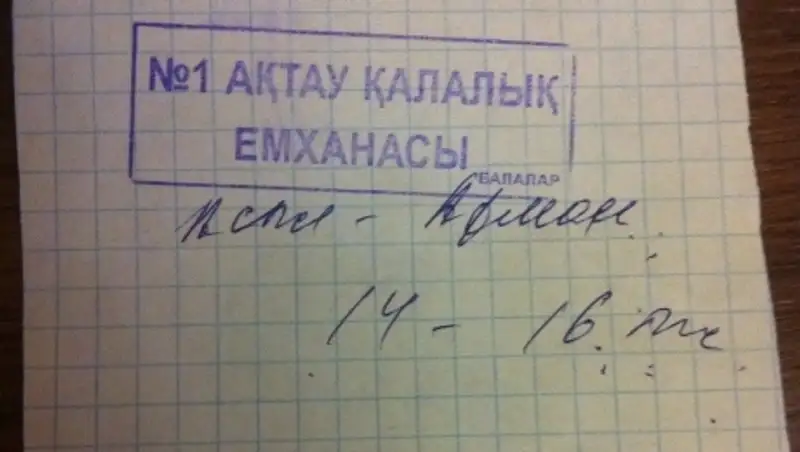 №1 АҚТАУ ҚАЛАЛЫҚ
ЕМХАНАСЫ
БАЛАЛАР
Асыл - Арман
14 - 16